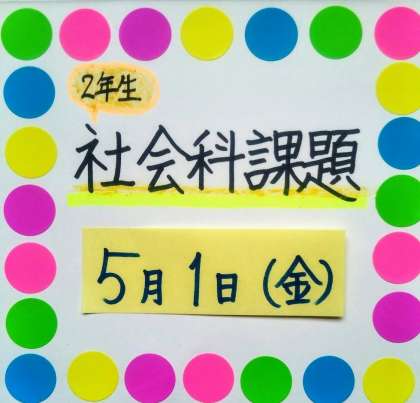 2年生
社会科課題
5月1日(金)